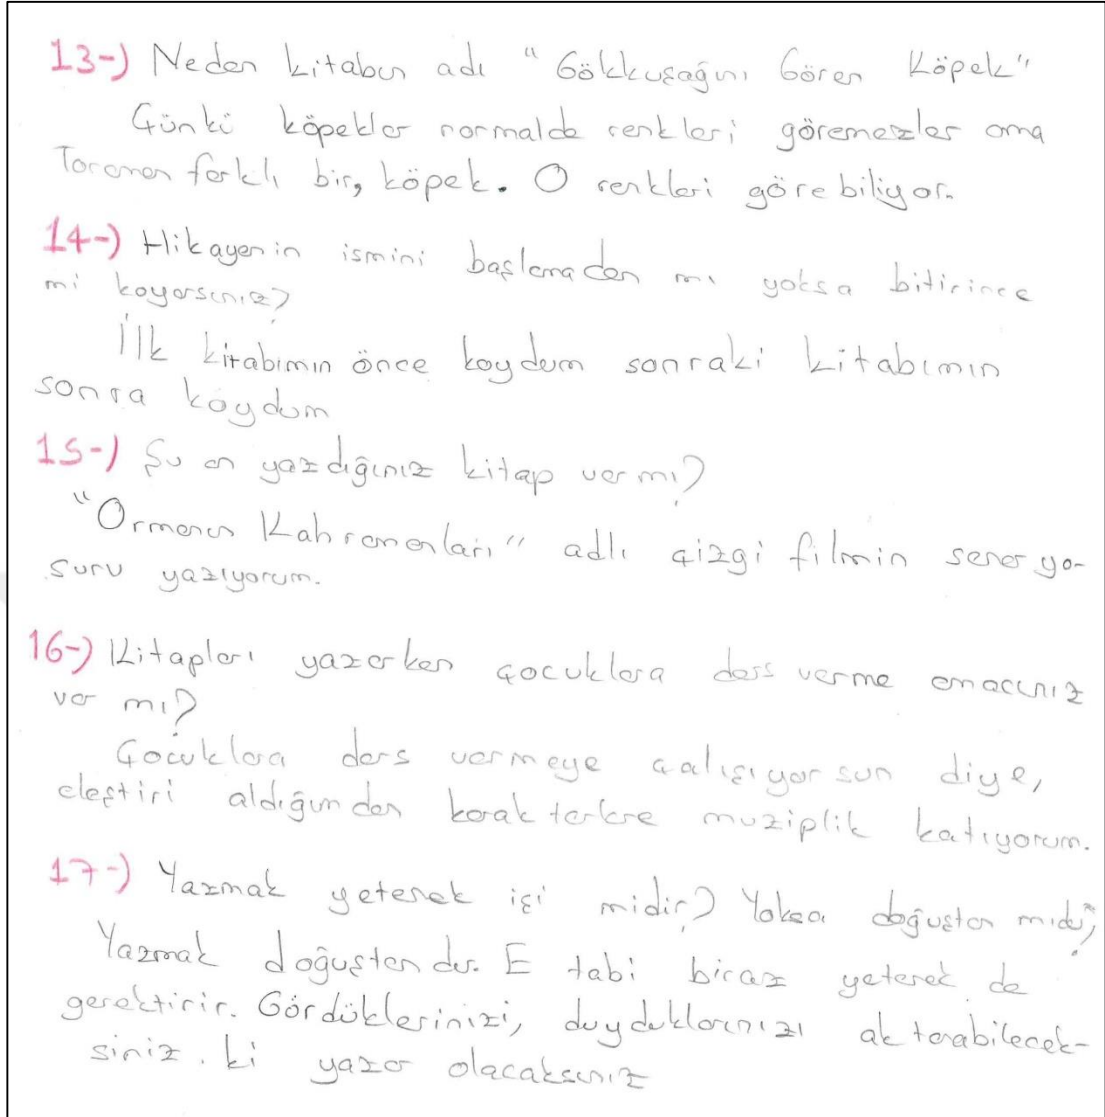 13-) Neden kitabın adı "Gökkuşağını Gören Köpek"
Çünkü köpekler normalde renkleri göremezler ama
Toraman farklı bir, köpek. O renkleri görebiliyor.
14-) Hikayenin ismini başlamadan mı yoksa bitirince
mi koyarsınız?
İlk kitabımın önce koydum sonraki kitabımın
sonra koydum
15-) Şu an yazdığınız kitap var mı?
"Ormanın Kahramanları" adlı çizgi filmin senaryo-
sunu yazıyorum.
16-) Kitapları yazarken çocuklara ders verme amacınız
var mı?
Çocuklara ders vermeye çalışıyorsun diye,
eleştiri aldığımdan karakterlere muziplik katıyorum.
17-) Yazmak yetenek işi midir? Yoksa doğuştan mıdır?
Yazmak doğuştandır. E tabi biraz yetenek de
gerektirir. Gördüklerinizi, duyduklarınızı aktarabilecek-
siniz. ki yazar olacaksınız